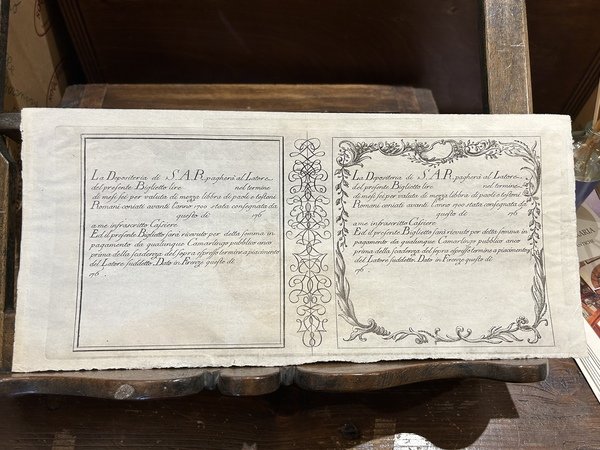 La Depositeria di S.A.R. pagherà al Latore
del presente Biglietto lire nel termine
di mesi sei per valuta di mezza libbra de paoli e testoni
Romani coniati avanti l'anno 1700 stata consegnata da
questo dì 176
a me infrascritto Cassiere
Ed il presente Biglietto sarà ricevuto per detta somma in
pagamento da qualunque Camarlingo pubblico anco
prima della scadenza del sopra espresso termine a piacimento
del Latore suddetto. Dato in Firenze questo dì
176 .
La Depositeria di S.A.R. pagherà al Latore
del presente Biglietto lire nel termine
di mesi sei per valuta di mezza libbra de paoli e testoni
Romani coniati avanti l'anno 1700 stata consegnata da
questo dì 176
a me infrascritto Cassiere
Ed il presente Biglietto sarà ricevuto per detta somma in
pagamento da qualunque Camarlingo pubblico anco
prima della scadenza del sopra espresso termine a piacimento
del Latore suddetto. Dato in Firenze questo dì
176